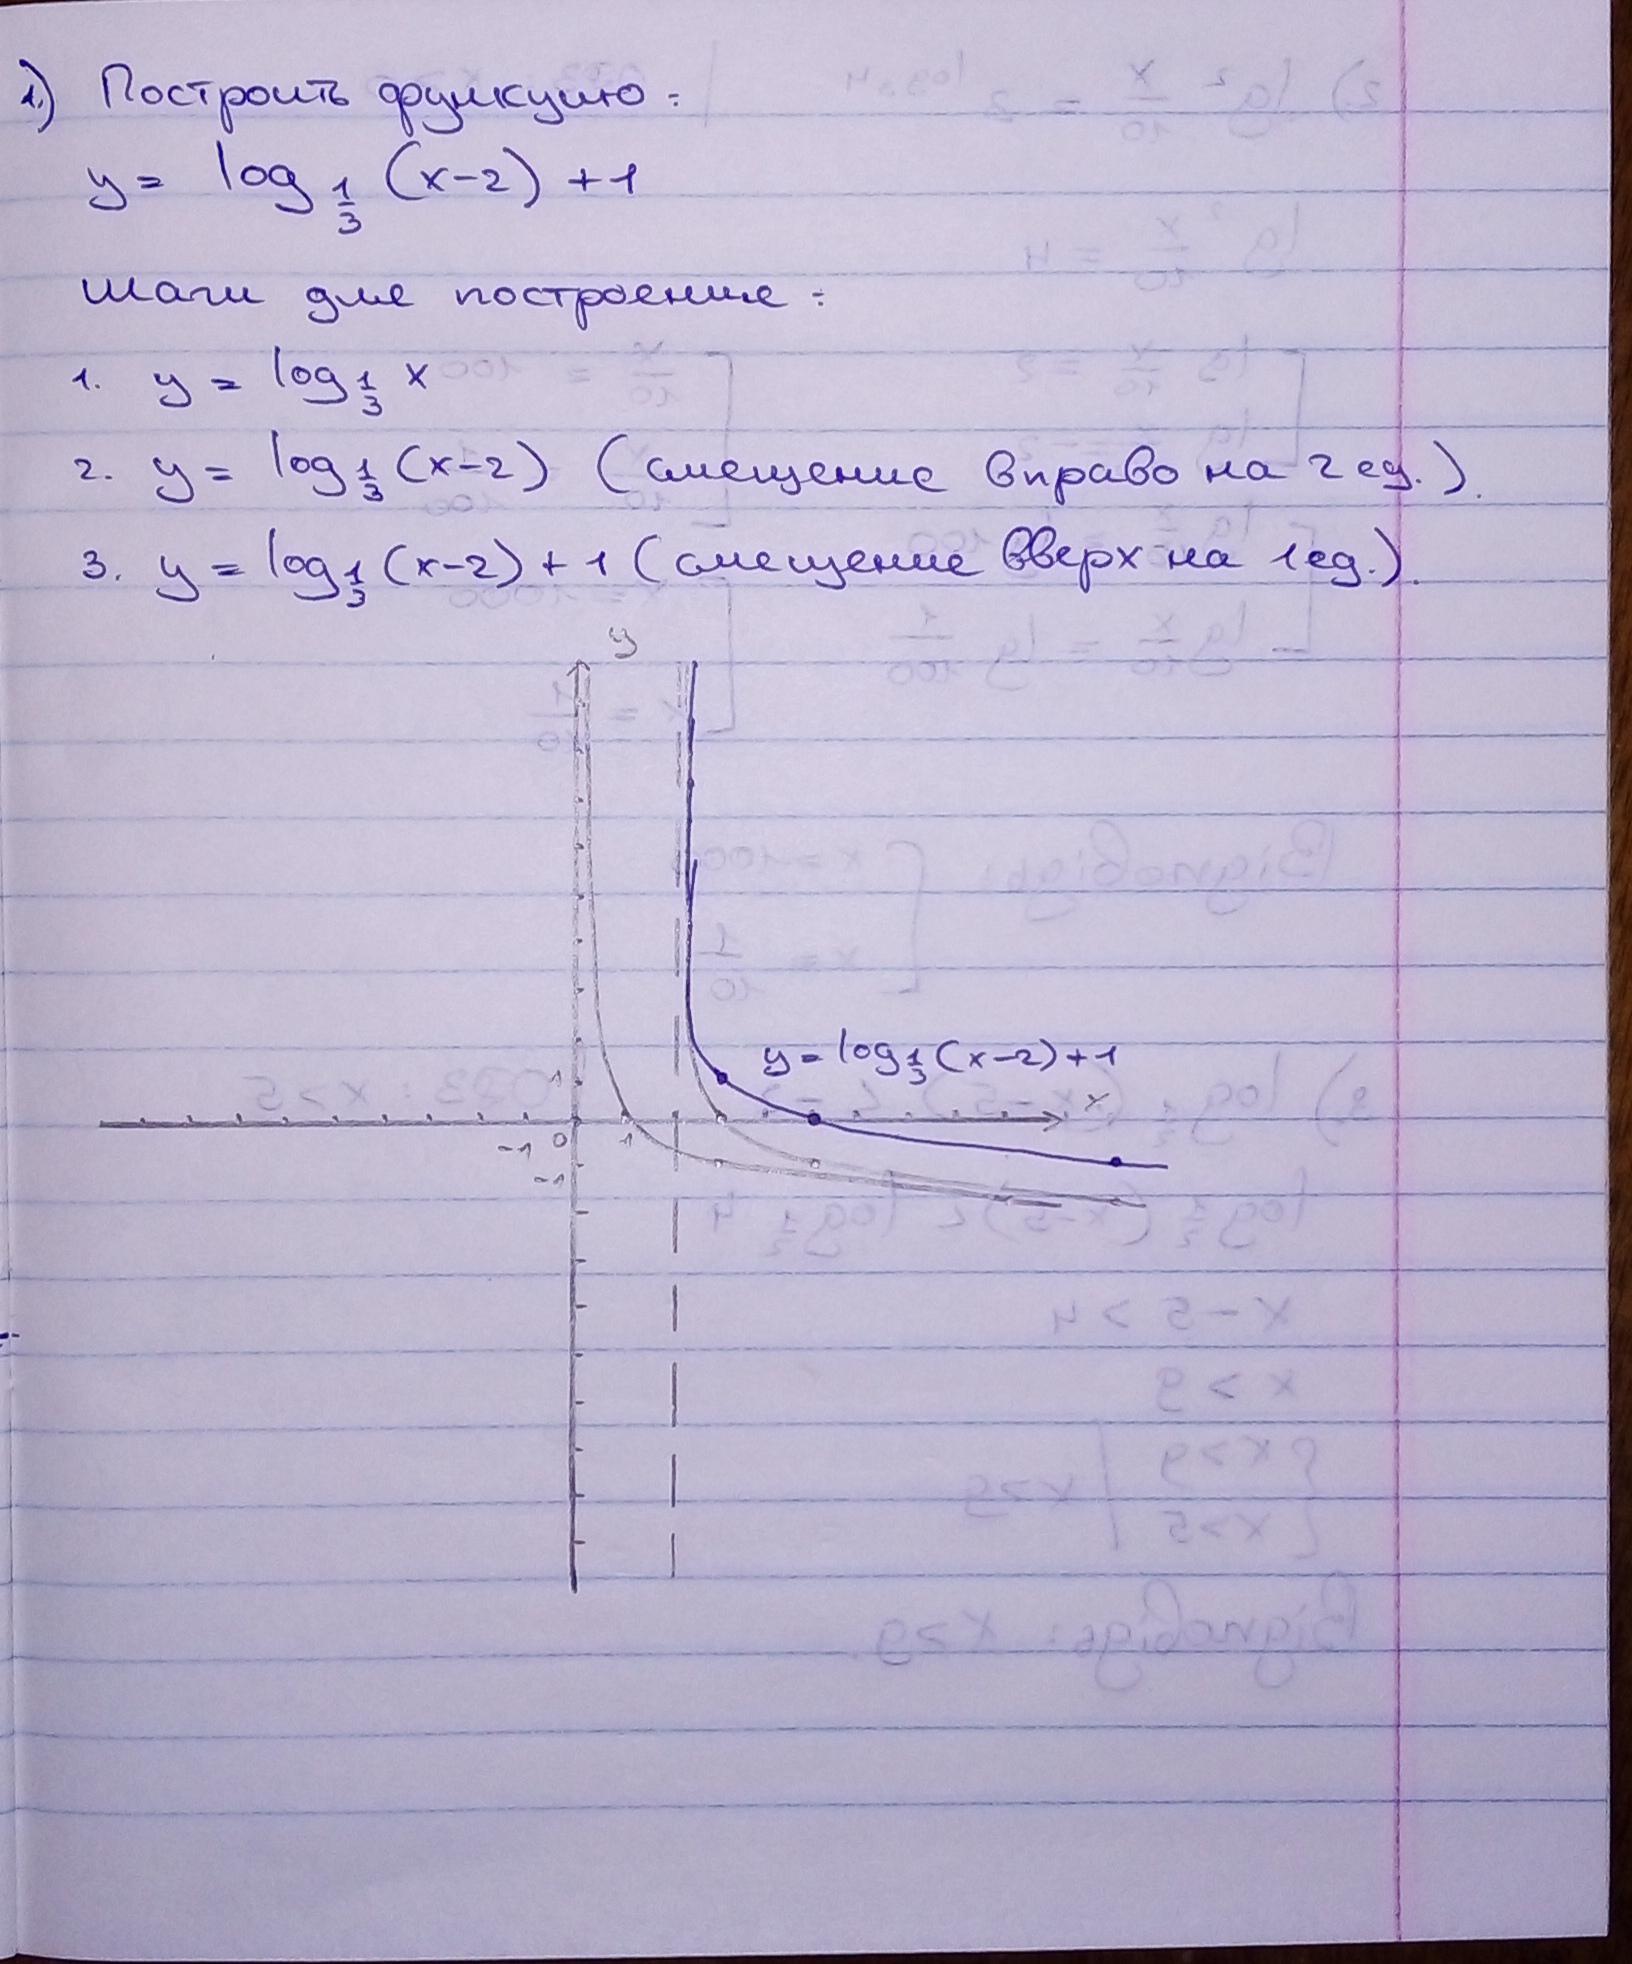 1.) Построить функцию:
y = log 1/3 (x-2) +1
Шаги для построение:
1. y = log 1/3 x
2. y = log 1/3 (x-2) (смещение вправо на 2 ед.).
3. y = log 1/3 (x-2) + 1 (смещение вверх на 1 ед.).
y
y = log 1/3 (x-2) +1
1
x
-1 0 1
-1